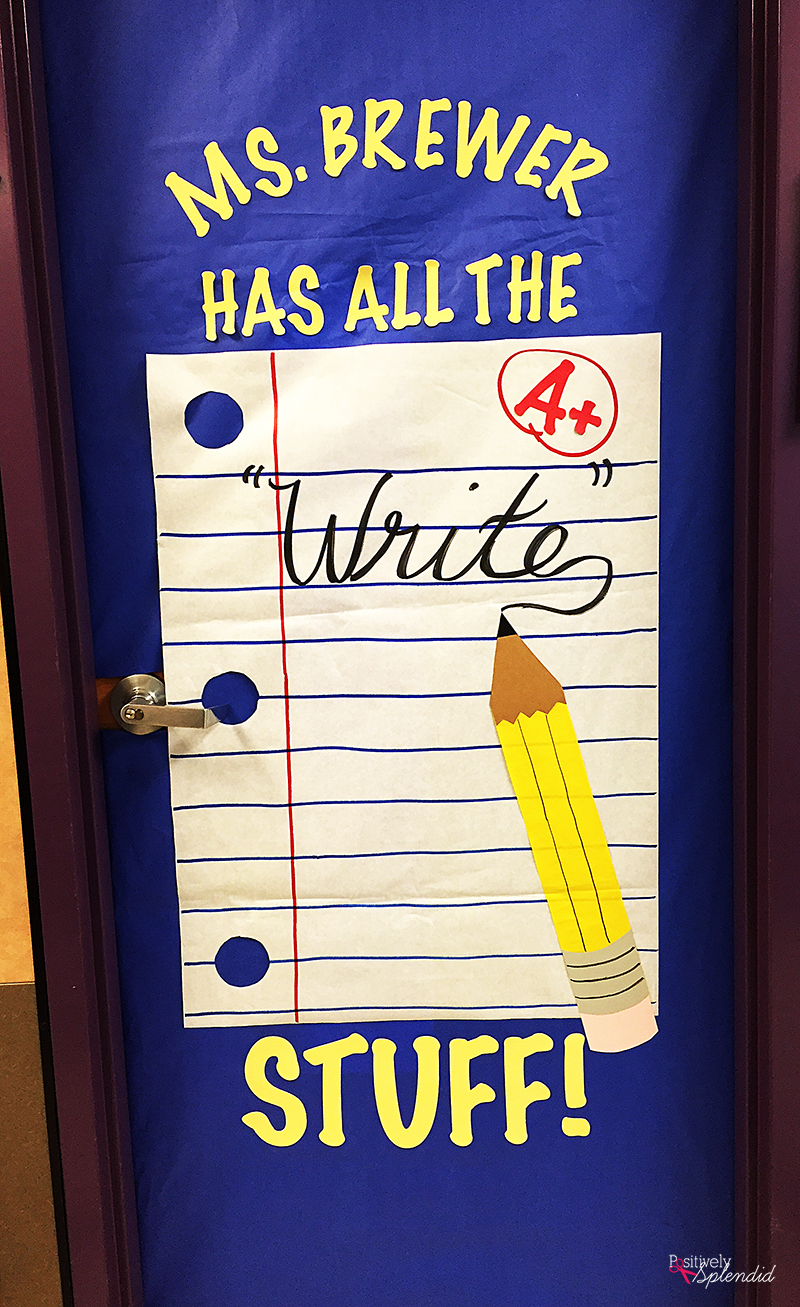 MS. BREWER
HAS ALL THE
A+
“Write”
STUFF!
Positively
Splendid